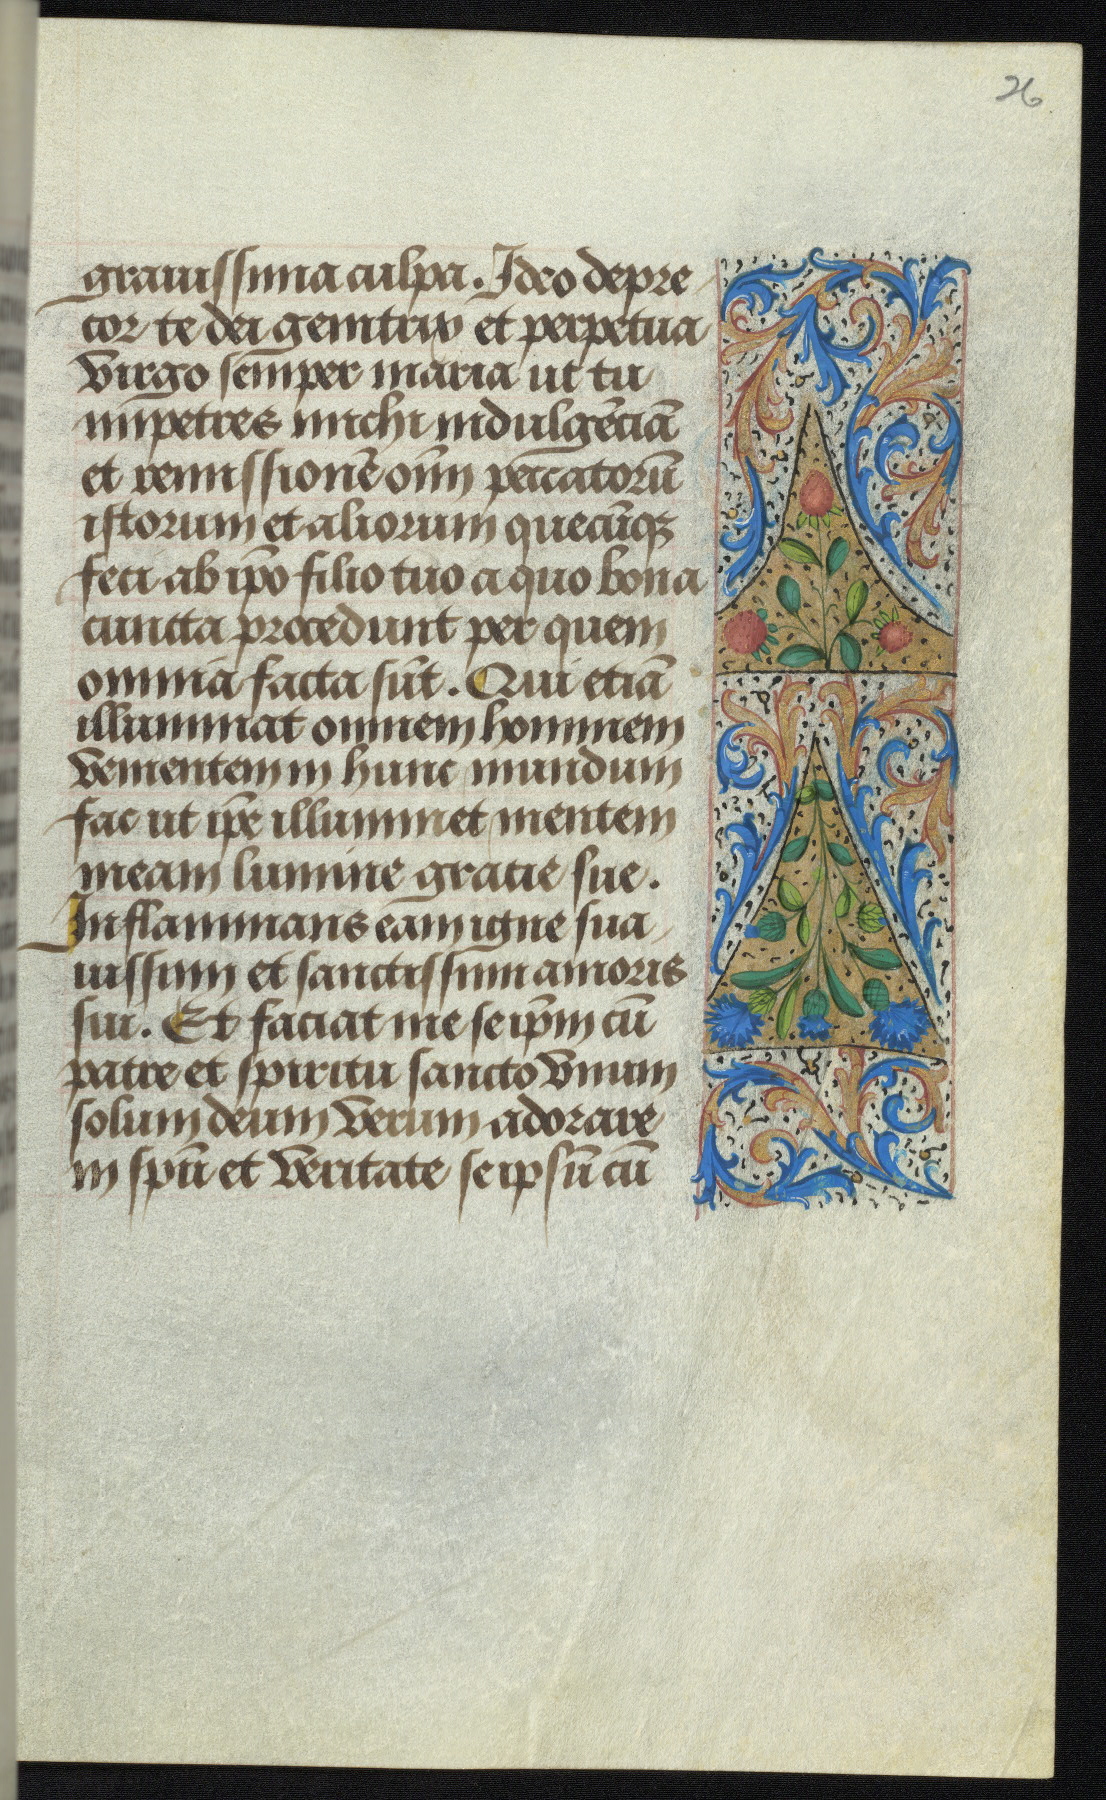 26
grauissima culpa. Ideo depre
cor te dei genitrix et perpetua
virgo semper maria ut tu
impetres michi indulgēciā
et remissionē oīm peccatorū
istorum et aliorum quecūqꝫ
feci ab ip̄o filio tuo a quo bona
cuncta procedunt per quem
omnia facta sūt. Qui etiā
illuminat omnem hominem
venientem in hunc mundum
fac ut ip̄e illuminet mentem
meam lumine gracie sue.
Inflammans eam igne sua
uissimi et sanctissimi amoris
sui. Et faciat me seip̄m cū
patre et spiritu sancto vnum
solum deum verum adorare
in sp̄u et veritate seipsū cū